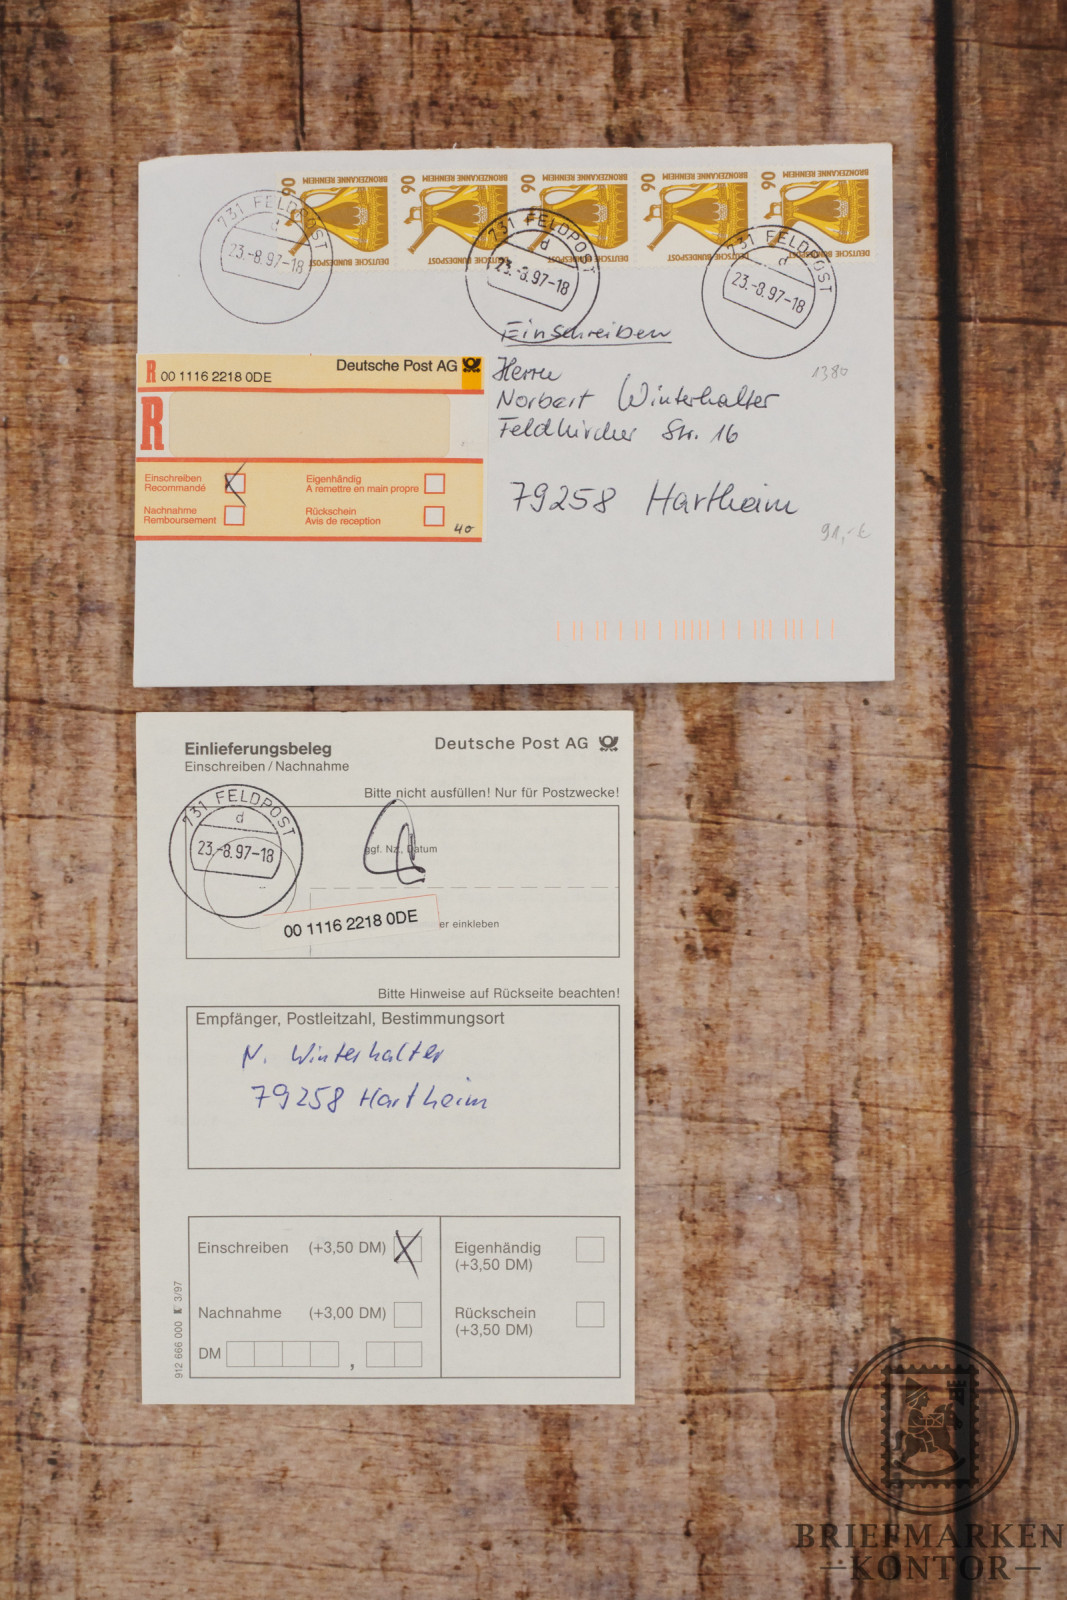 90 BRONZEKANNE REINHEIM DEUTSCHE BUNDESPOST
90 BRONZEKANNE REINHEIM DEUTSCHE BUNDESPOST
90 BRONZEKANNE REINHEIM DEUTSCHE BUNDESPOST
90 BRONZEKANNE REINHEIM DEUTSCHE BUNDESPOST
90 BRONZEKANNE REINHEIM DEUTSCHE BUNDESPOST
731 FELDPOST
d
23.-8.97-18
731 FELDPOST
d
23.-8.97-18
731 FELDPOST
d
23.-8.97-18
Einschreiben
Herrn
Norbert Winterhalter
Feldkircher Str. 16
79258 Hartheim
1380
91,-€
R 00 1116 2218 0DE
Deutsche Post AG
R
Einschreiben
Recommandé
Eigenhändig
A remettre en main propre
Nachnahme
Remboursement
Rückschein
Avis de reception
40
Einlieferungsbeleg
Einschreiben / Nachnahme
Deutsche Post AG
Bitte nicht ausfüllen! Nur für Postzwecke!
731 FELDPOST
d
23.-8.97-18
ggf. Nz., Datum
00 1116 2218 0DE
er einkleben
Bitte Hinweise auf Rückseite beachten!
Empfänger, Postleitzahl, Bestimmungsort
N. Winterhalter
79258 Hartheim
Einschreiben (+3,50 DM)
Eigenhändig
(+3,50 DM)
Nachnahme (+3,00 DM)
Rückschein
(+3,50 DM)
DM ,
912 666 000 K 3/97
BRIEFMARKEN
KONTOR